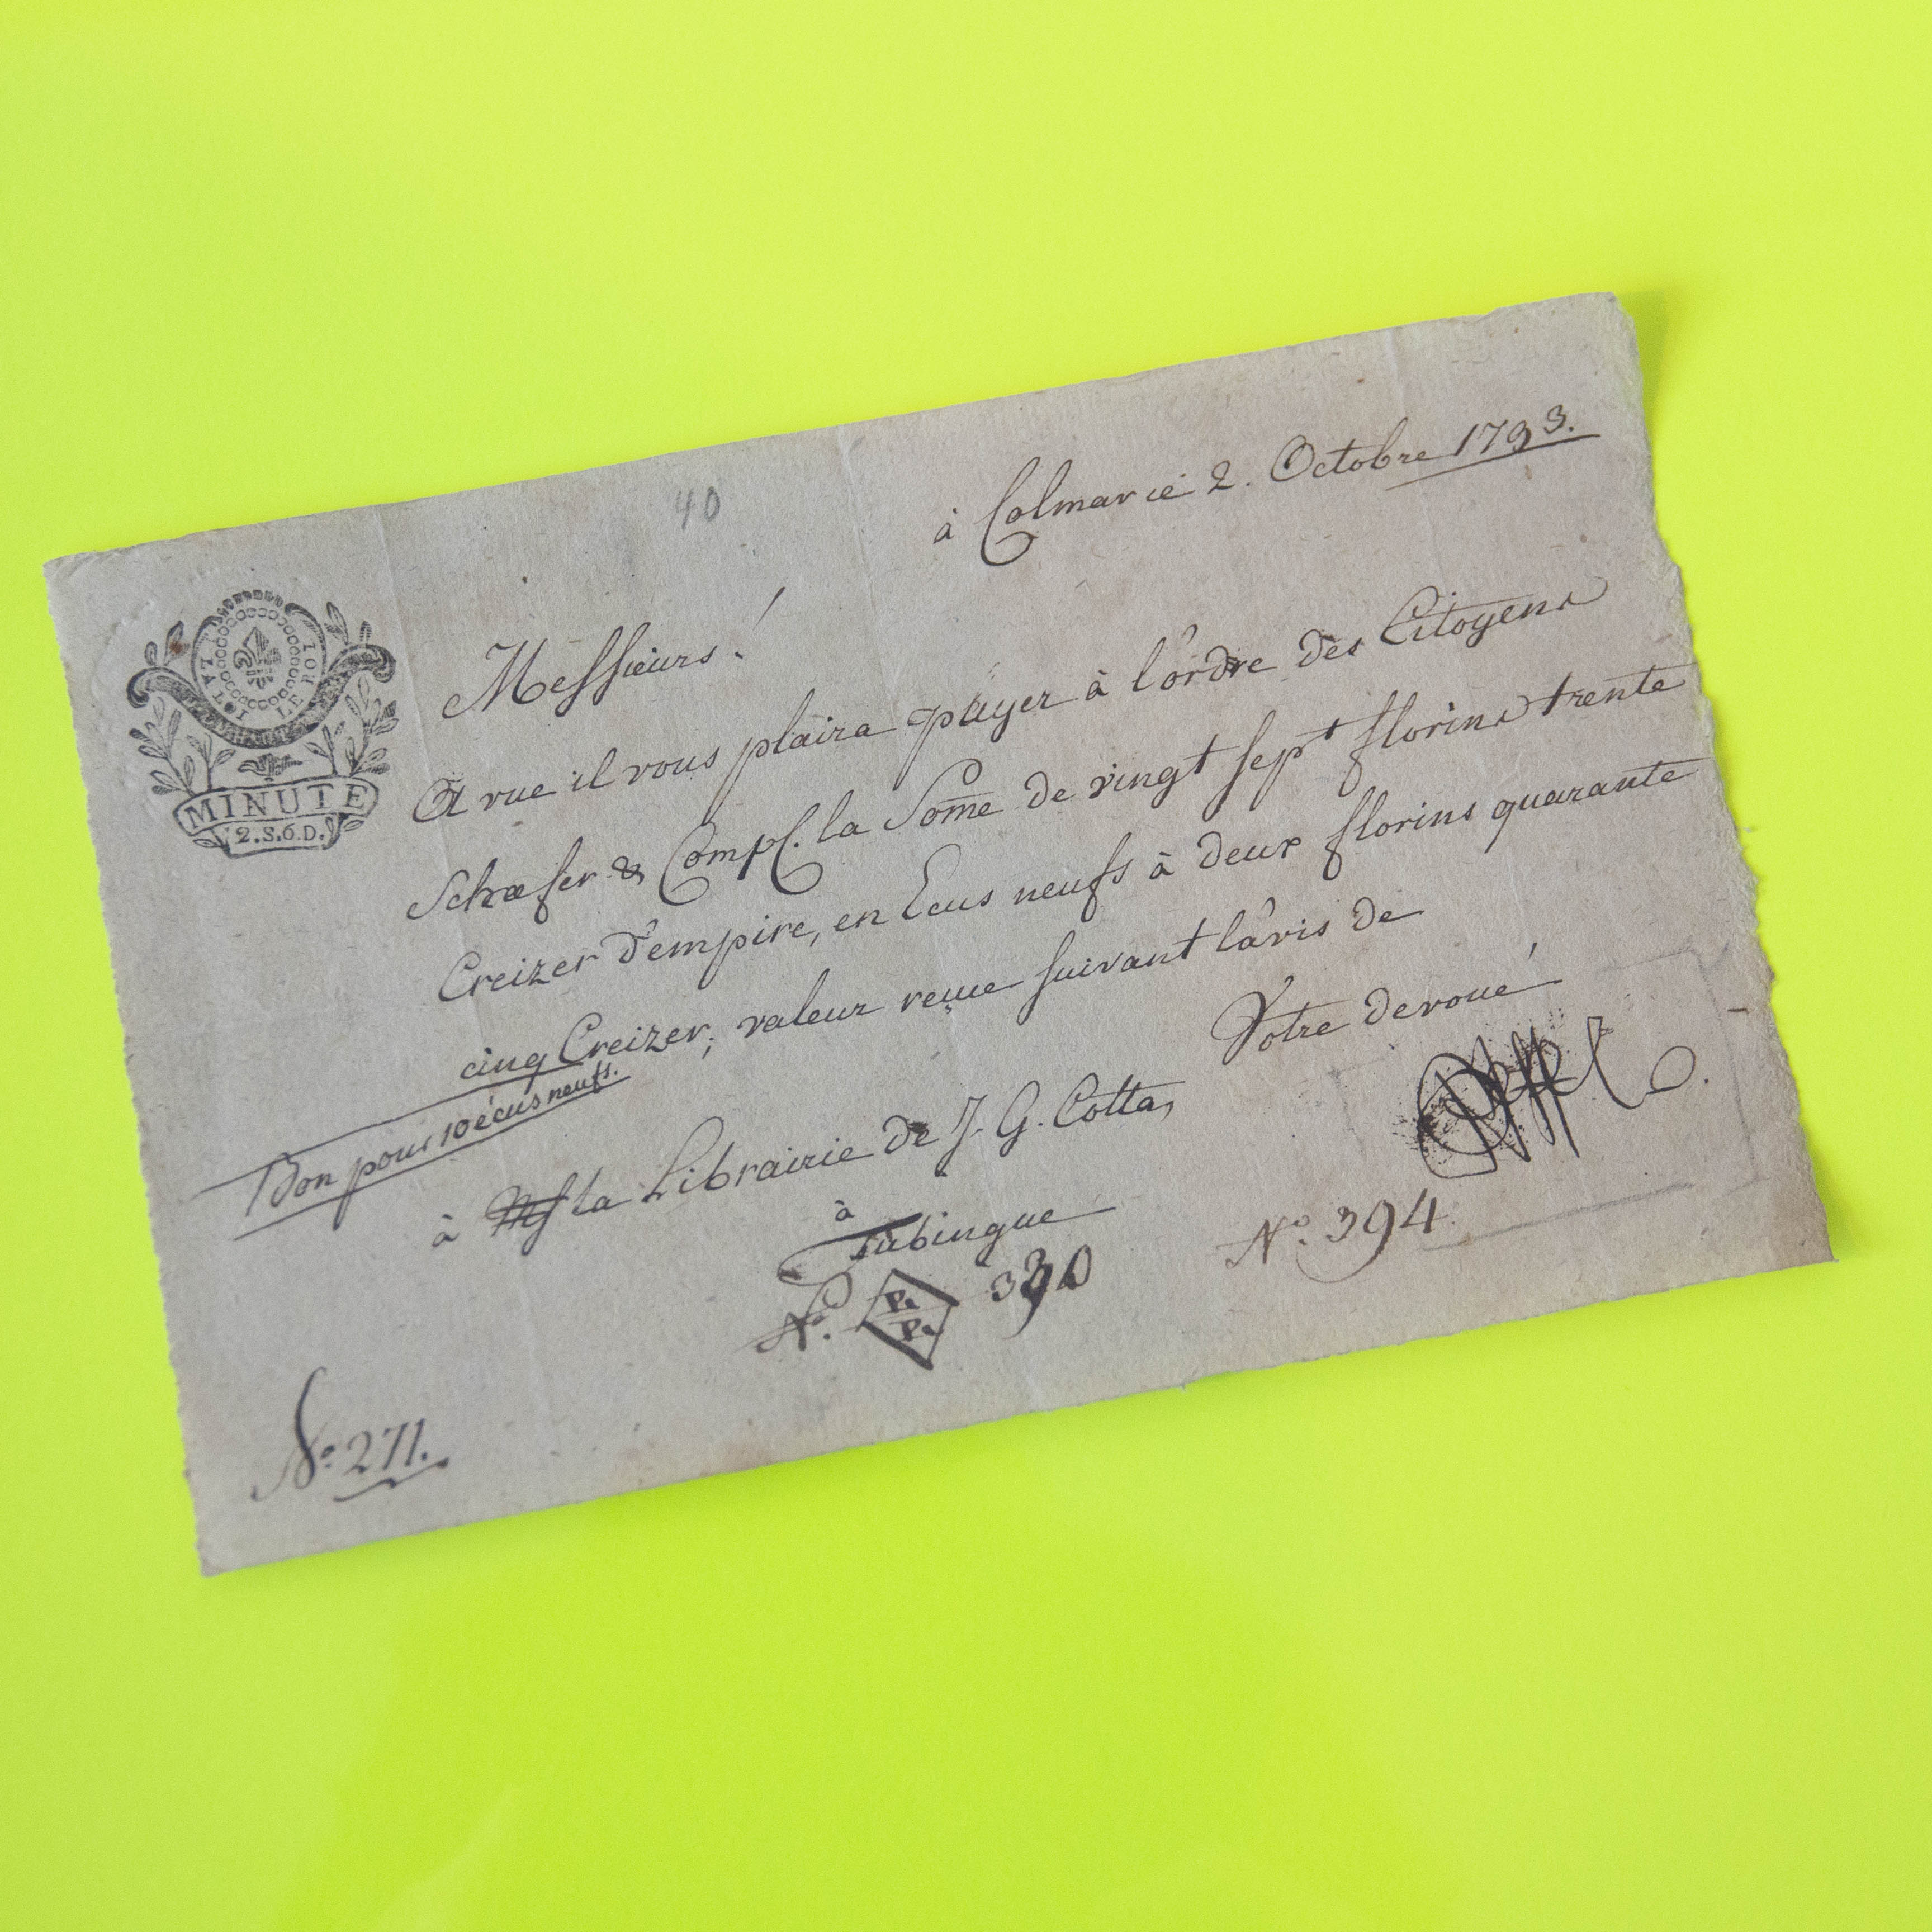 40
à Colmar ce 2. Octobre 1793.
LA LOI LE ROI
MINUTE
2.S.6.D.
Messieurs!
A vue il vous plaira païyer à l'ordre des Citoyens
Schæfer & Comp. la Some de vingt sept florins trente
Creizer d'empire, en Ecus neufs à deux florins quarante
cinq Creizer; valeur reçue suivant l'avis de
Votre devoué
Bon pour 10 écus neufs.
à la Librairie de J. G. Cotta,
à
Tubingue
No. P. P. 330
No. 394.
No. 271.